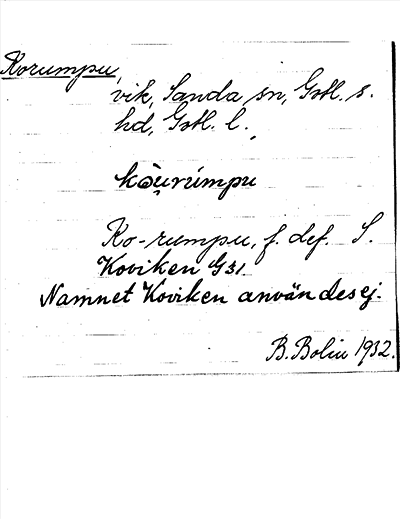 Korumpu,
vik, Sanda sn, Gotl. s.
hd, Gotl. l.
kòu̯rúmpu
Ko-rumpu, f. def. S.
Koviken G31
Namnet Koviken användes ej.
B. Bolin 1932.